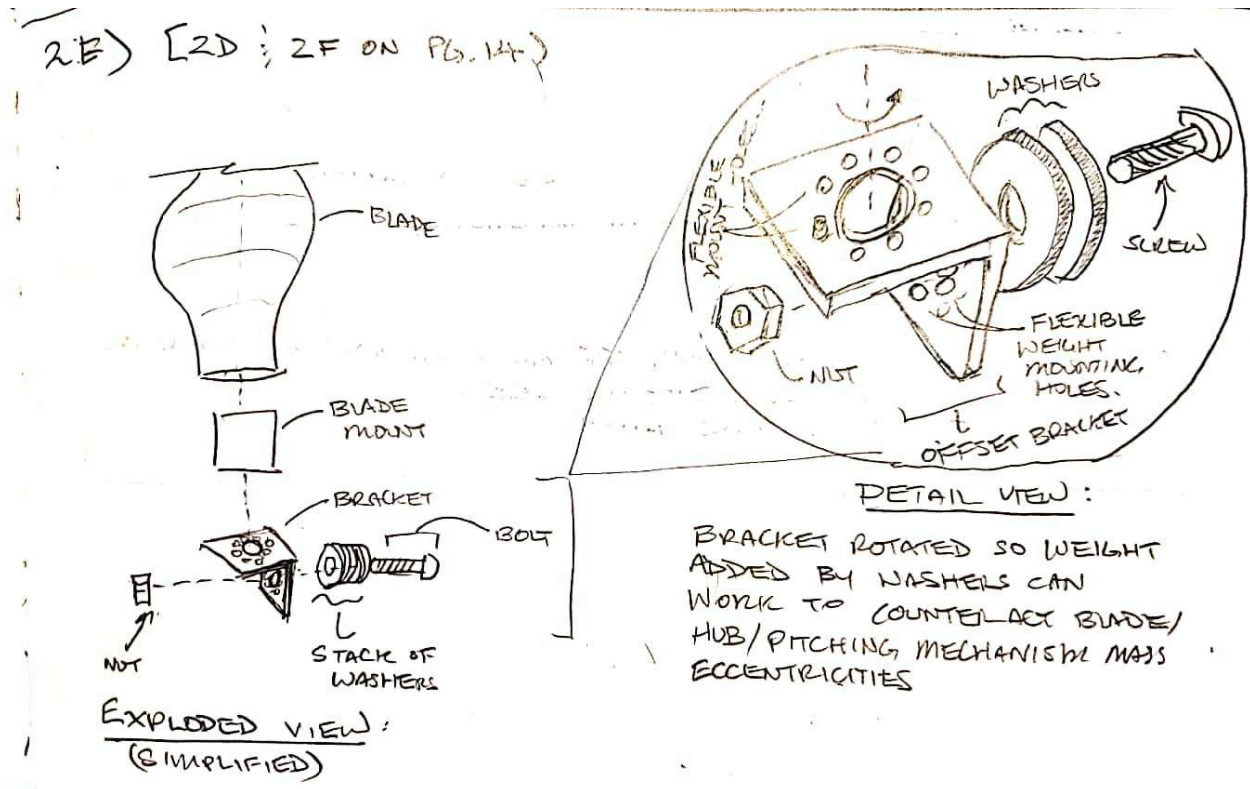 2.E) [2D ; 2F ON PG. 14)
BLADE
BLADE
MOUNT
BRACKET
BOLT
NUT
STACK OF
WASHERS
EXPLODED VIEW:
(SIMPLIFIED)
WASHERS
SCREW
FLEXIBLE
NUT
FLEXIBLE
WEIGHT
MOUNTING
HOLES.
OFFSET BRACKET
DETAIL VIEW:
BRACKET ROTATED SO WEIGHT
ADDED BY WASHERS CAN
WORK TO COUNTERACT BLADE/
HUB/PITCHING MECHANISM MASS
ECCENTRICITIES